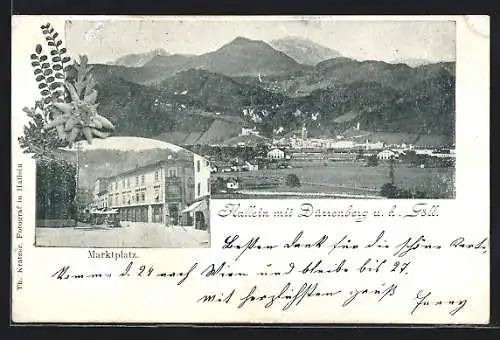 Hallein mit Dürrenberg u. h. Göll.
Marktplatz.
Th. Kratzer. Fotograf in Hallein
Besten Dank für die schöne Karte.
Komme d. 24 nach Wien und bleibe bis 27.
mit herzlichsten Gruß Fanny